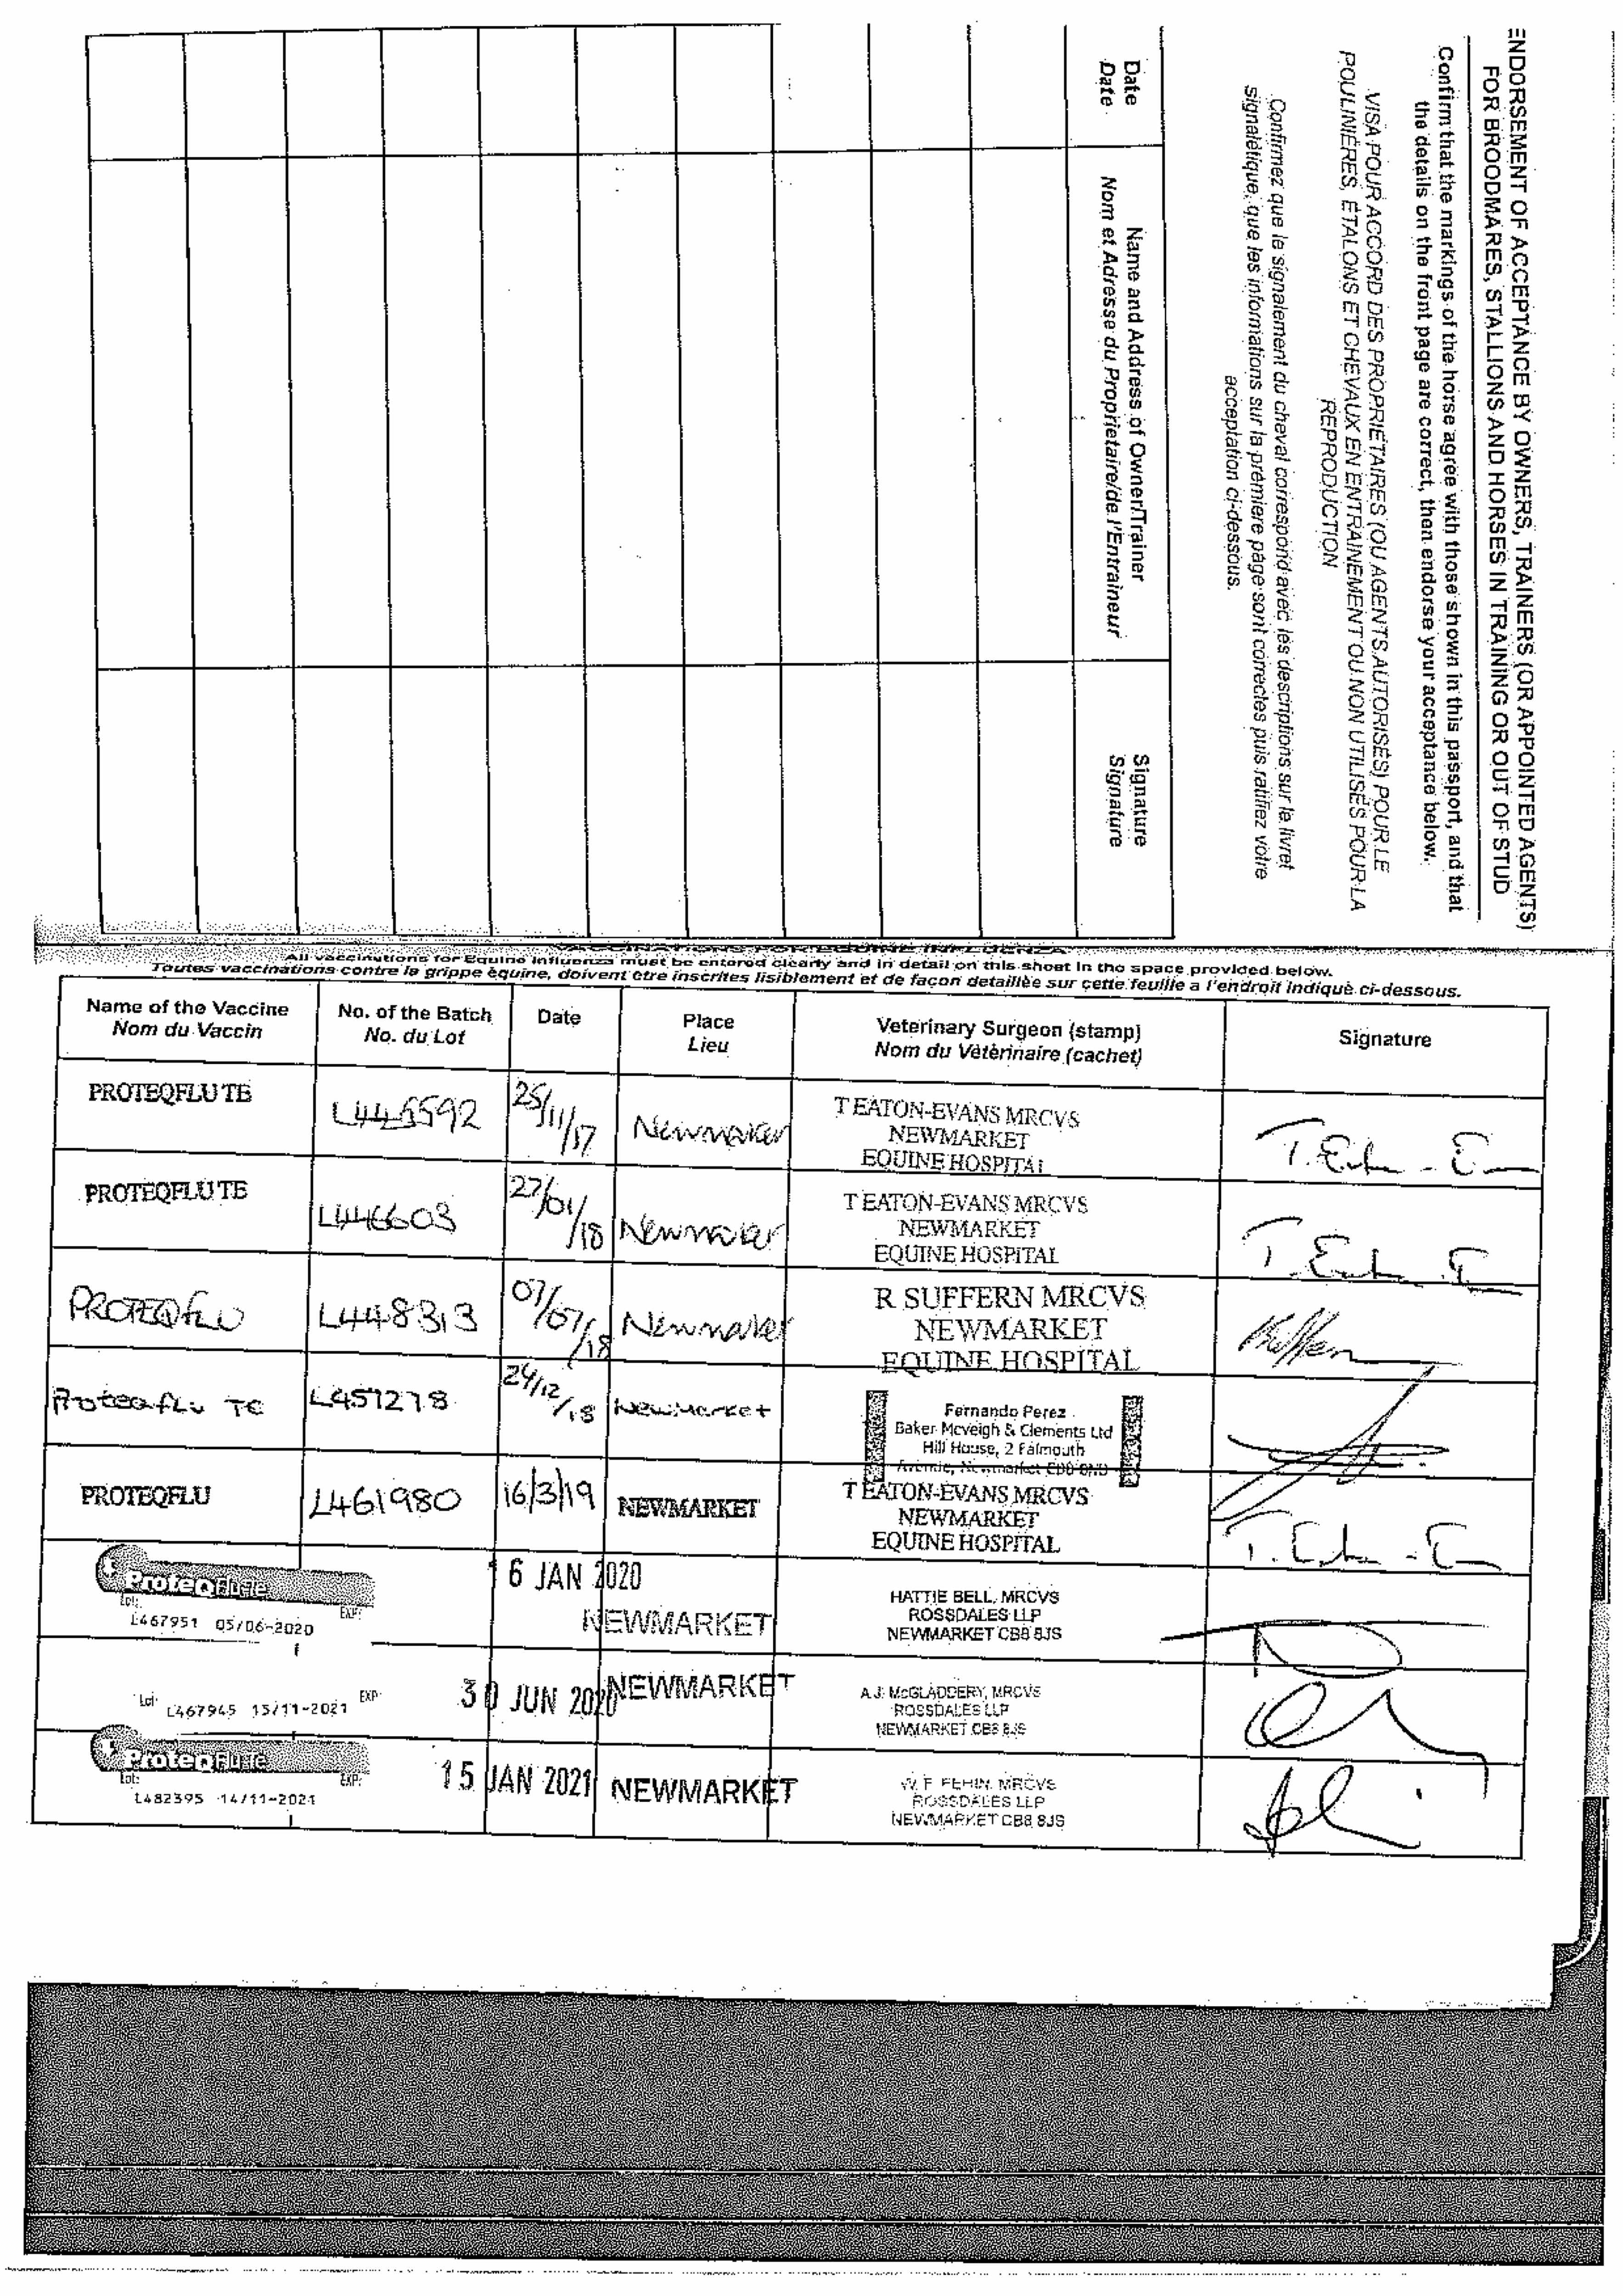 ENDORSEMENT OF ACCEPTANCE BY OWNERS, TRAINERS (OR APPOINTED AGENTS)
FOR BROODMARES, STALLIONS AND HORSES IN TRAINING OR OUT OF STUD
Confirm that the markings of the horse agree with those shown in this passport, and that
the details on the front page are correct, then endorse your acceptance below.
VISA POUR ACCORD DES PROPRIÉTAIRES (OU AGENTS AUTORISÉS) POUR LE
POULINIÈRES, ÉTALONS ET CHEVAUX EN ENTRAINEMENT OU NON UTILISÉS POUR LA
REPRODUCTION
Confirmez que le signalement du cheval correspond avec les descriptions sur le livret
signalétique, que les informations sur la première page sont correctes puis ratifiez votre
acceptation ci-dessous.
Date
Date
Name and Address of Owner/Trainer
Nom et Adresse du Proprietaire/de l'Entraîneur
Signature
Signature
VACCINATIONS FOR EQUINE INFLUENZA
All vaccinations for Equine Influenza must be entered clearly and in detail on this sheet in the space provided below.
Toutes vaccinations contre la grippe équine, doivent etre inscrites lisiblement et de façon detaillée sur cette feuille a l'endroit indiqué ci-dessous.
Name of the Vaccine
Nom du Vaccin
No. of the Batch
No. du Lot
Date
Place
Lieu
Veterinary Surgeon (stamp)
Nom du Vétérinaire (cachet)
Signature
PROTEQFLU TE
L445592
25/11/17
Newmarket
T EATON-EVANS MRCVS
NEWMARKET
EQUINE HOSPITAL
PROTEQFLU TE
L446603
27/01/18
Newmarket
T EATON-EVANS MRCVS
NEWMARKET
EQUINE HOSPITAL
PROTEQFLU
L448313
07/07/18
Newmarket
R SUFFERN MRCVS
NEWMARKET
EQUINE HOSPITAL
Proteqflu TE
L457278
24/12/18
Newmarket
Fernando Perez
Baker Mcveigh & Clements Ltd
Hill House, 2 Falmouth
Avenue, Newmarket CB8 0NB
PROTEQFLU
L461980
16/3/19
NEWMARKET
T EATON-EVANS MRCVS
NEWMARKET
EQUINE HOSPITAL
ProteqFlu-Te
Lot: EXP:
L467951 05/06-2020
16 JAN 2020
NEWMARKET
HATTIE BELL, MRCVS
ROSSDALES LLP
NEWMARKET CB8 8JS
Lot: L467945 15/11-2021 EXP:
30 JUN 2020
NEWMARKET
A.J. McGLADDERY, MRCVS
ROSSDALES LLP
NEWMARKET CB8 8JS
ProteqFlu-Te
Lot: EXP:
L482395 14/11-2021
15 JAN 2021
NEWMARKET
W. F. FEHIN, MRCVS
ROSSDALES LLP
NEWMARKET CB8 8JS